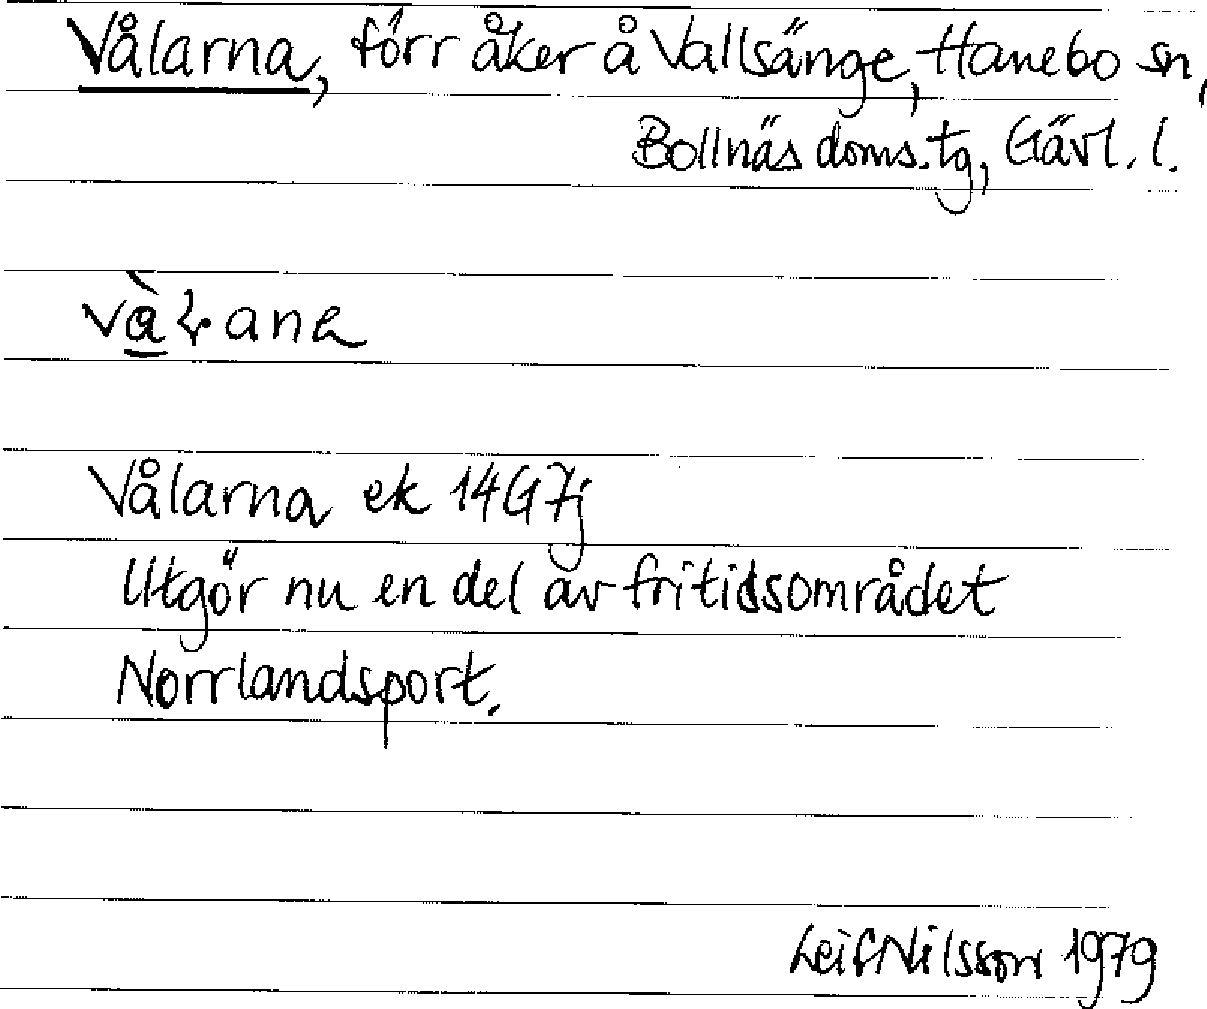 Vålarna, förr åker å Vallsänge, Hanebo sn,
Bollnäs doms. tg, Gävl. l.
Vålarna ek 14G7j
Utgör nu en del av fritidsområdet
Norrlandsport.
Leif Nilsson 1979